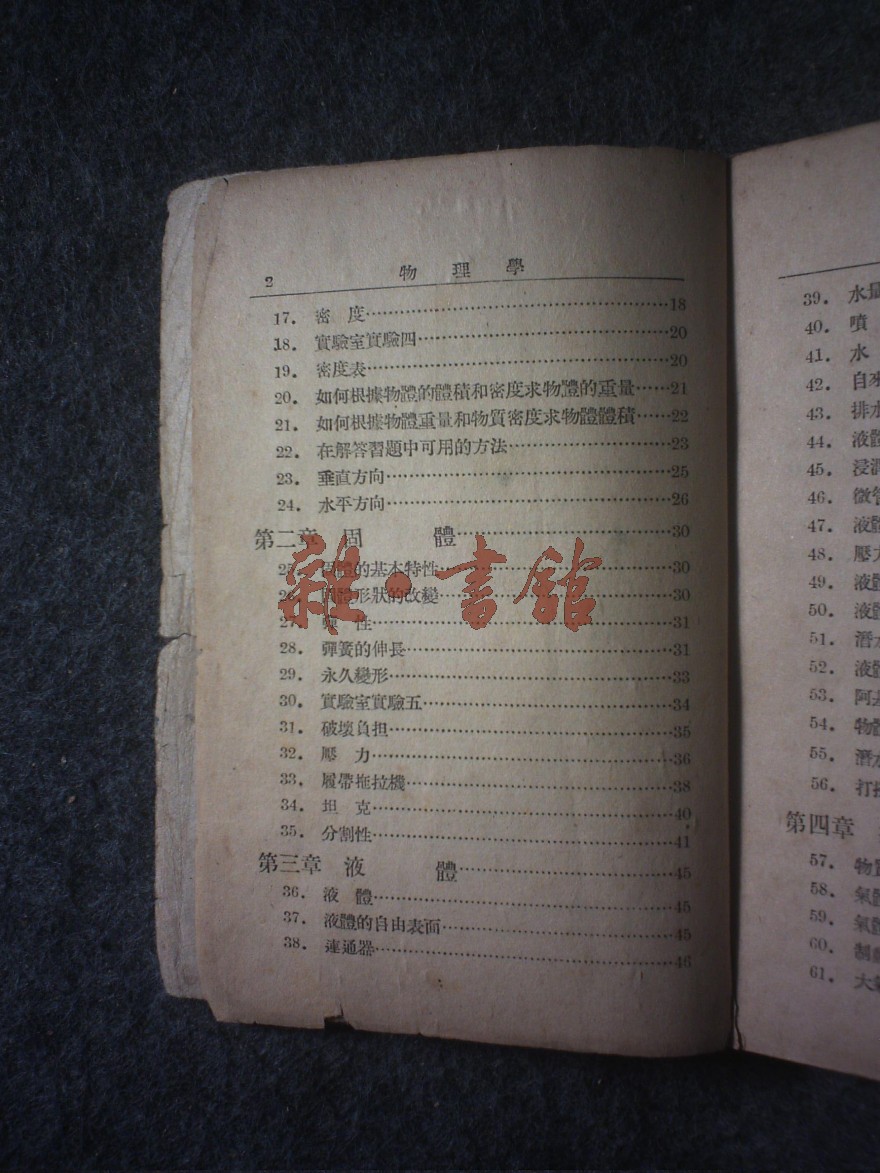 2 物理學
17. 密度……18
18. 實驗室實驗四……20
19. 密度表……20
20. 如何根據物體的體積和密度求物體的重量……21
21. 如何根據物體重量和物質密度求物體體積……22
22. 在解答習題中可用的方法……23
23. 垂直方向……25
24. 水平方向……26
第二章 固體……30
25. 固體的基本特性……30
26. 固體形狀的改變……30
27. 彈性……31
28. 彈簧的伸長……31
29. 永久變形……33
30. 實驗室實驗五……34
31. 破壞負担……35
32. 壓力……36
33. 履帶拖拉機……38
34. 坦克……40
35. 分割性……41
第三章 液體……45
36. 液體……45
37. 液體的自由表面……45
38. 連通器……46
雜·書館
39. 水
40. 噴
41. 水
42. 自來
43. 排水
44. 液體
45. 浸
46. 微管
47. 液體
48. 壓力
49. 液體
50. 液體
51. 潛水
52. 液體
53. 阿基
54. 物體
55. 潛水
56. 打
第四章
57. 物質
58. 氣體
59. 氣體
60. 制
61. 大氣